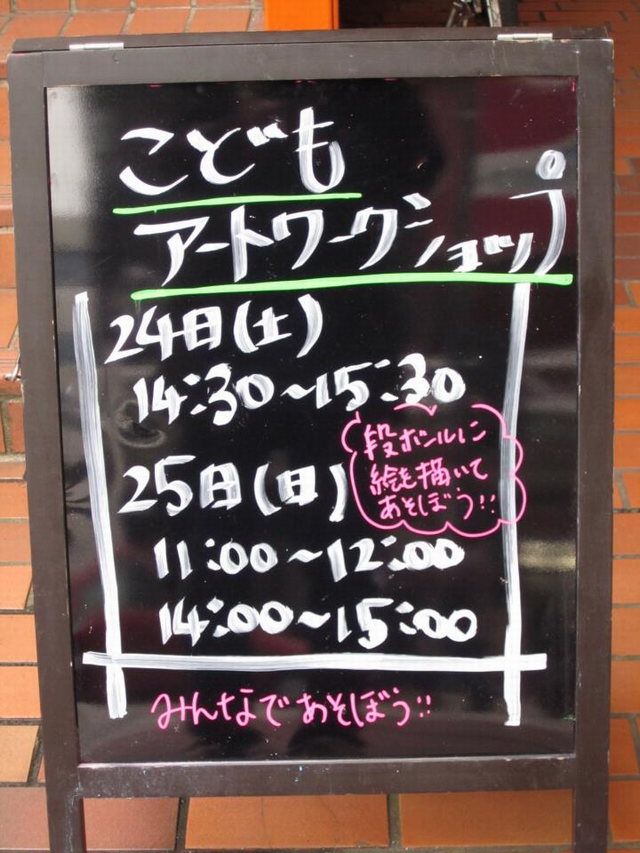 こども
アートワークショップ
24日(土)
14:30〜15:30
段ボールに
絵を描いて
あそぼう!!
25日(日)
11:00〜12:00
14:00〜15:00
みんなであそぼう!!